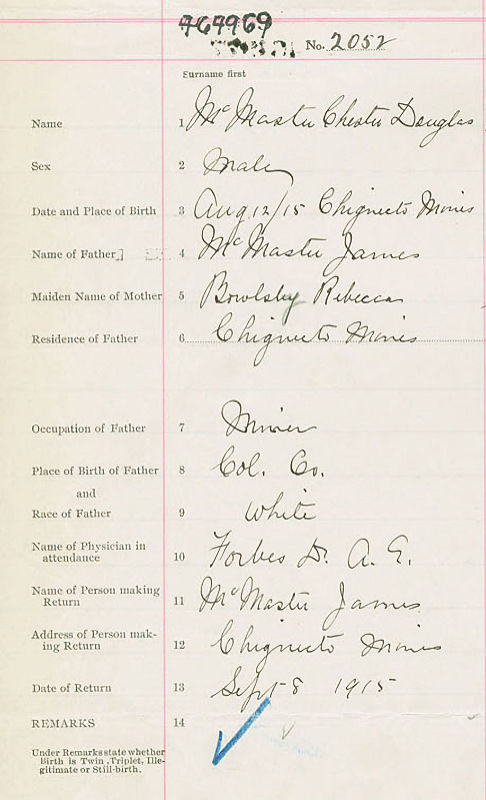 464969
No. 2052
Surname first
Name 1 McMaster Chester Douglas
Sex 2 Male
Date and Place of Birth 3 Aug 12/15 Chignecto Mines
Name of Father 4 McMaster James
Maiden Name of Mother 5 Bowlsby Rebecca
Residence of Father 6 Chignecto Mines
Occupation of Father 7 Miner
Place of Birth of Father 8 Col. Co.
and
Race of Father 9 White
Name of Physician in
attendance 10 Forbes D. A. E.
Name of Person making
Return 11 McMaster James
Address of Person mak-
ing Return 12 Chignecto Mines
Date of Return 13 Sept 8 1915
REMARKS 14
Under Remarks state whether
Birth is Twin, Triplet, Ille-
gitimate or Still-birth.